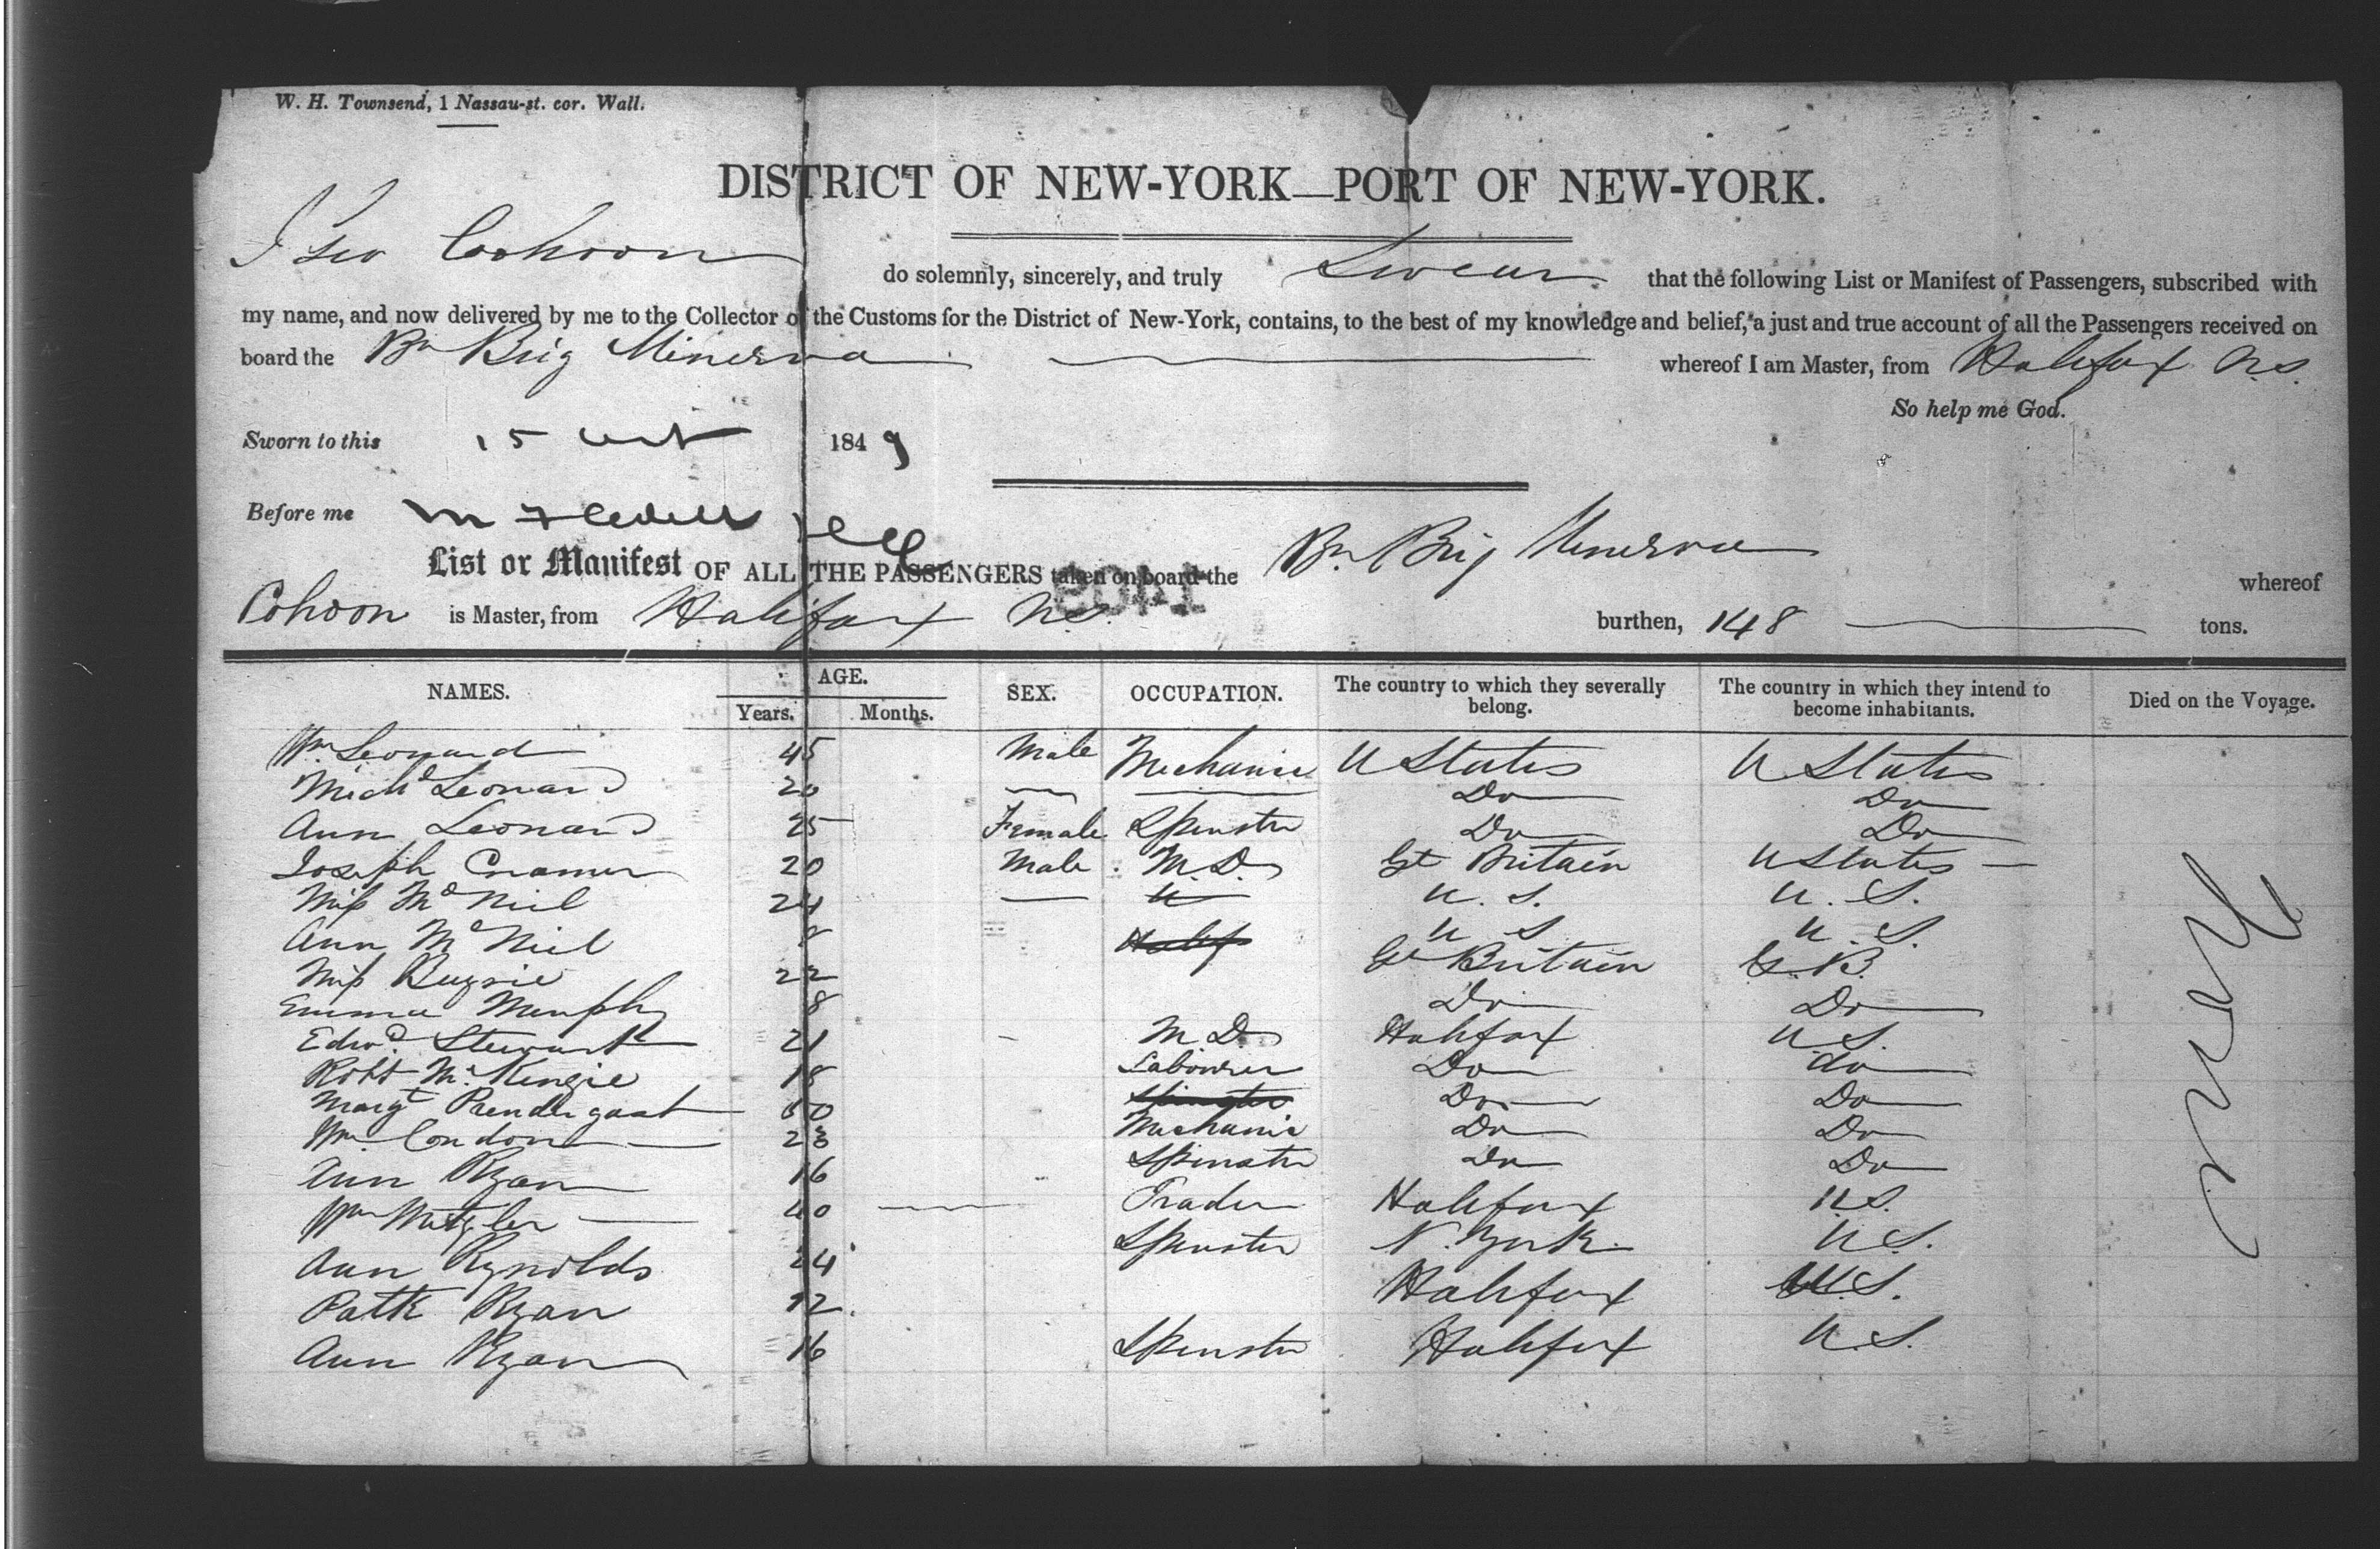 W. H. Townsend, 1 Nassau-st. cor. Wall.
DISTRICT OF NEW-YORK—PORT OF NEW-YORK.
I Geo Cohoon do solemnly, sincerely, and truly Swear that the following List or Manifest of Passengers, subscribed with
my name, and now delivered by me to the Collector of the Customs for the District of New-York, contains, to the best of my knowledge and belief, a just and true account of all the Passengers received on
board the Br Brig Minerva whereof I am Master, from Halifax N.S.
So help me God.
Sworn to this 15 Oct 1849
Before me
List or Manifest OF ALL THE PASSENGERS taken on board the Br Brig Minerva whereof
Cohoon is Master, from Halifax N.S. burthen, 148 tons.
NAMES. AGE. Years. Months. SEX. OCCUPATION. The country to which they severally belong. The country in which they intend to become inhabitants. Died on the Voyage.
Wm Leonard 45 Male Mechanic U States U States
Michl Leonard 20 Do Do
Ann Leonard 25 Female Spinster Do Do
Joseph Cramer 20 Male M.D. Gt Britain U States
Miss McNiel 24 U. S. U. S.
Ann McNiel 8 Halif U S U. S.
Miss 22 Gt Britain G. B.
Emma Murphy 8 Do Do
Edwd. Stewart 21 M. D. Halifax U S.
Robt McKenzie 18 Labourer Do do
Margt Prendergast 50 Spinster Do Do
Wm Condon 23 Mechanic Do Do
Ann Ryan 16 Spinster Do Do
Wm Mutzler 40 Trader Halifax U.S.
Ann Rynolds 24 Spinster N. York U S.
Patk Ryan 12. Halifax U.S.
Ann Ryan 16 Spinster Halifax U.S.
None